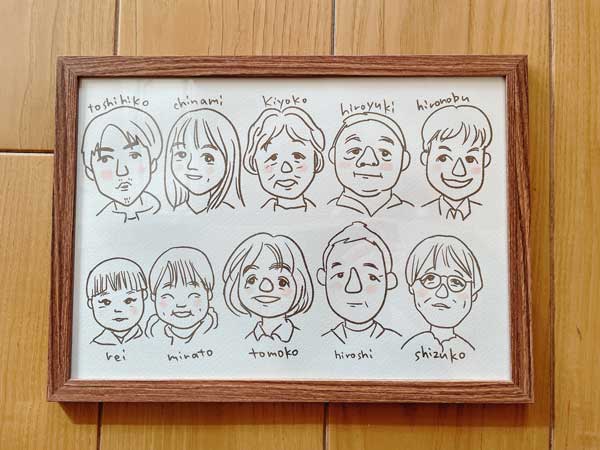 toshihiko chinami kiyoko hiroyuki hironobu
rei minato tomoko hiroshi shizuko